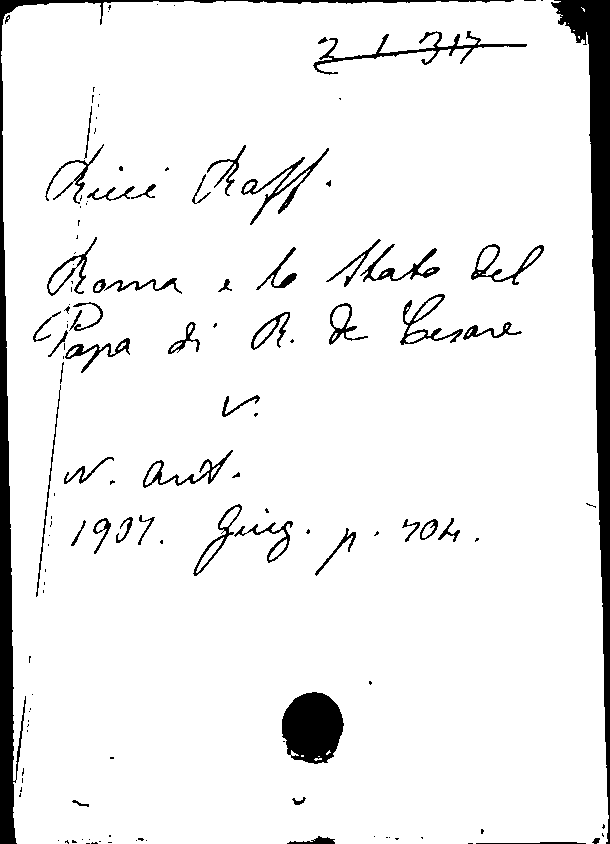 2 1 317
Ricci Raff.
Roma e lo Stato del
Papa di R. de Cesare
V.
N. Ant.
1907. Giug. p. 704.